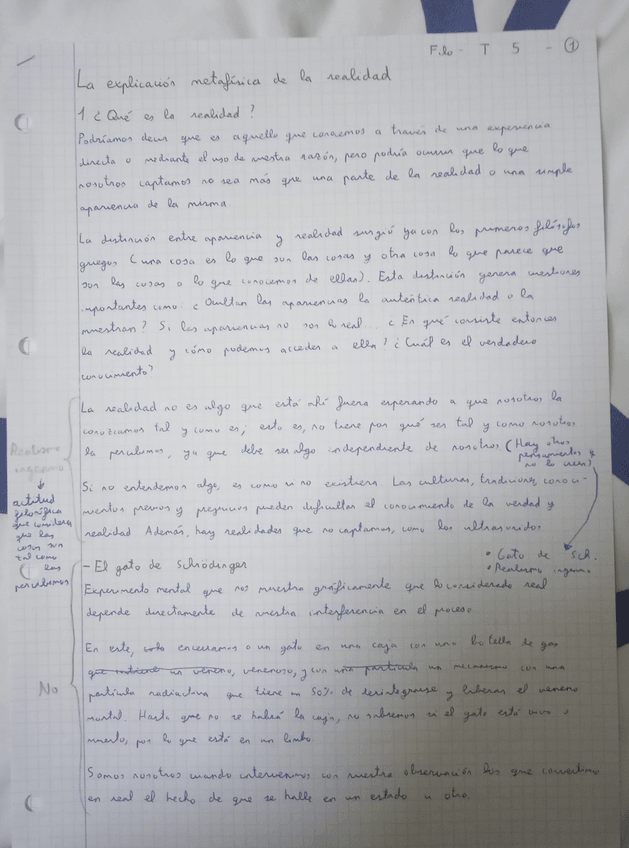 Filo - T 5 - 1
La explicación metafísica de la realidad
1 ¿Qué es la realidad?
Podríamos decir que es aquello que conocemos a través de una experiencia
directa o mediante el uso de nuestra razón, pero podría ocurrir que lo que
nosotros captamos no sea más que una parte de la realidad o una simple
apariencia de la misma.
La distinción entre apariencia y realidad surgió ya con los primeros filósofos
griegos (una cosa es lo que son las cosas y otra cosa lo que parece que
son las cosas o lo que conocemos de ellas). Esta distinción genera cuestiones
importantes como: ¿Ocultan las apariencias la auténtica realidad o la
muestran? Si las apariencias no son lo real... ¿En qué consiste entonces
la realidad y cómo podemos acceder a ella? ¿Cuál es el verdadero
conocimiento?
La realidad no es algo que está ahí fuera esperando a que nosotros la
conozcamos tal y como es; esto es, no tiene por qué ser tal y como nosotros
la percibimos, ya que debe ser algo independiente de nosotros. (Hay otros
pensamientos y
no lo creen)
Realismo
ingenuo
actitud
filosófica
que considera
que las
cosas son
tal como
las
percibimos
Si no entendemos algo, es como si no existiera. Las culturas, tradiciones, conoci-
mientos previos y prejuicios pueden dificultar el conocimiento de la verdad y
realidad. Además, hay realidades que no captamos, como los ultrasonidos.
• Gato de Sch.
• Realismo ingenuo
- El gato de Schrödinger
Experimento mental que nos muestra gráficamente que lo considerado real
depende directamente de nuestra interferencia en el proceso.
En este, encerramos a un gato en una caja con una botella de gas
que contiene un veneno, venenoso, y con una partícula un mecanismo con una
partícula radiactiva que tiene un 50% de desintegrarse y liberar el veneno
mortal. Hasta que no se habrá la caja, no sabremos si el gato está vivo o
muerto, por lo que está en un limbo.
No
Somos nosotros cuando intervenimos con nuestra observación los que convertimos
en real el hecho de que se halle en un estado u otro.